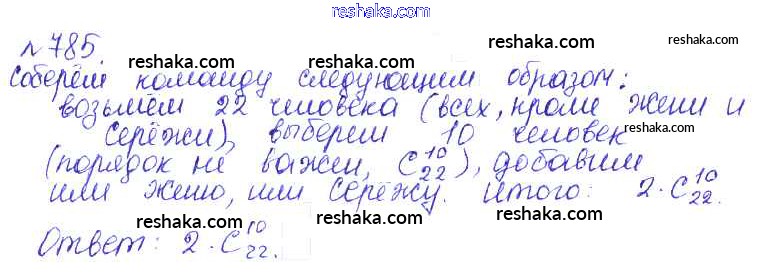 reshaka.com
№785.
reshaka.com
reshaka.com
Соберём команду следующим образом:
возьмём 22 человека (всех, кроме жени и
reshaka.com
reshaka.com
reshaka.com
Серёжи), выберем 10 человек
(порядок не важен, C₂₂¹⁰), добавим
или женю, или Серёжу. Итого: 2·C₂₂¹⁰.
reshaka.com
reshaka.com
reshaka.com
Ответ: 2·C₂₂¹⁰.
reshaka.com